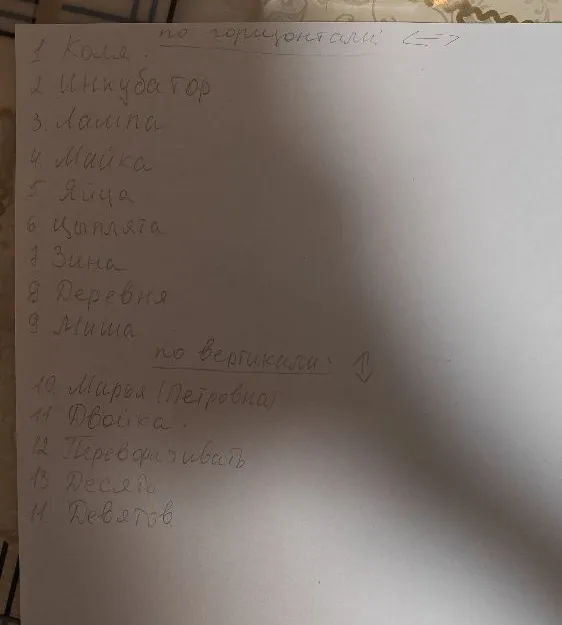 по горизонтали:
1 Коля.
2 Инкубатор
3. Лампа
4. Майка
5 Яйца
6 Цыплята
7 Зина
8 Деревня
9 Миша
по вертикали:
10. Марья (Петровна)
11 Двойка.
12 Переворачивать
13 Десять
14 Девятов